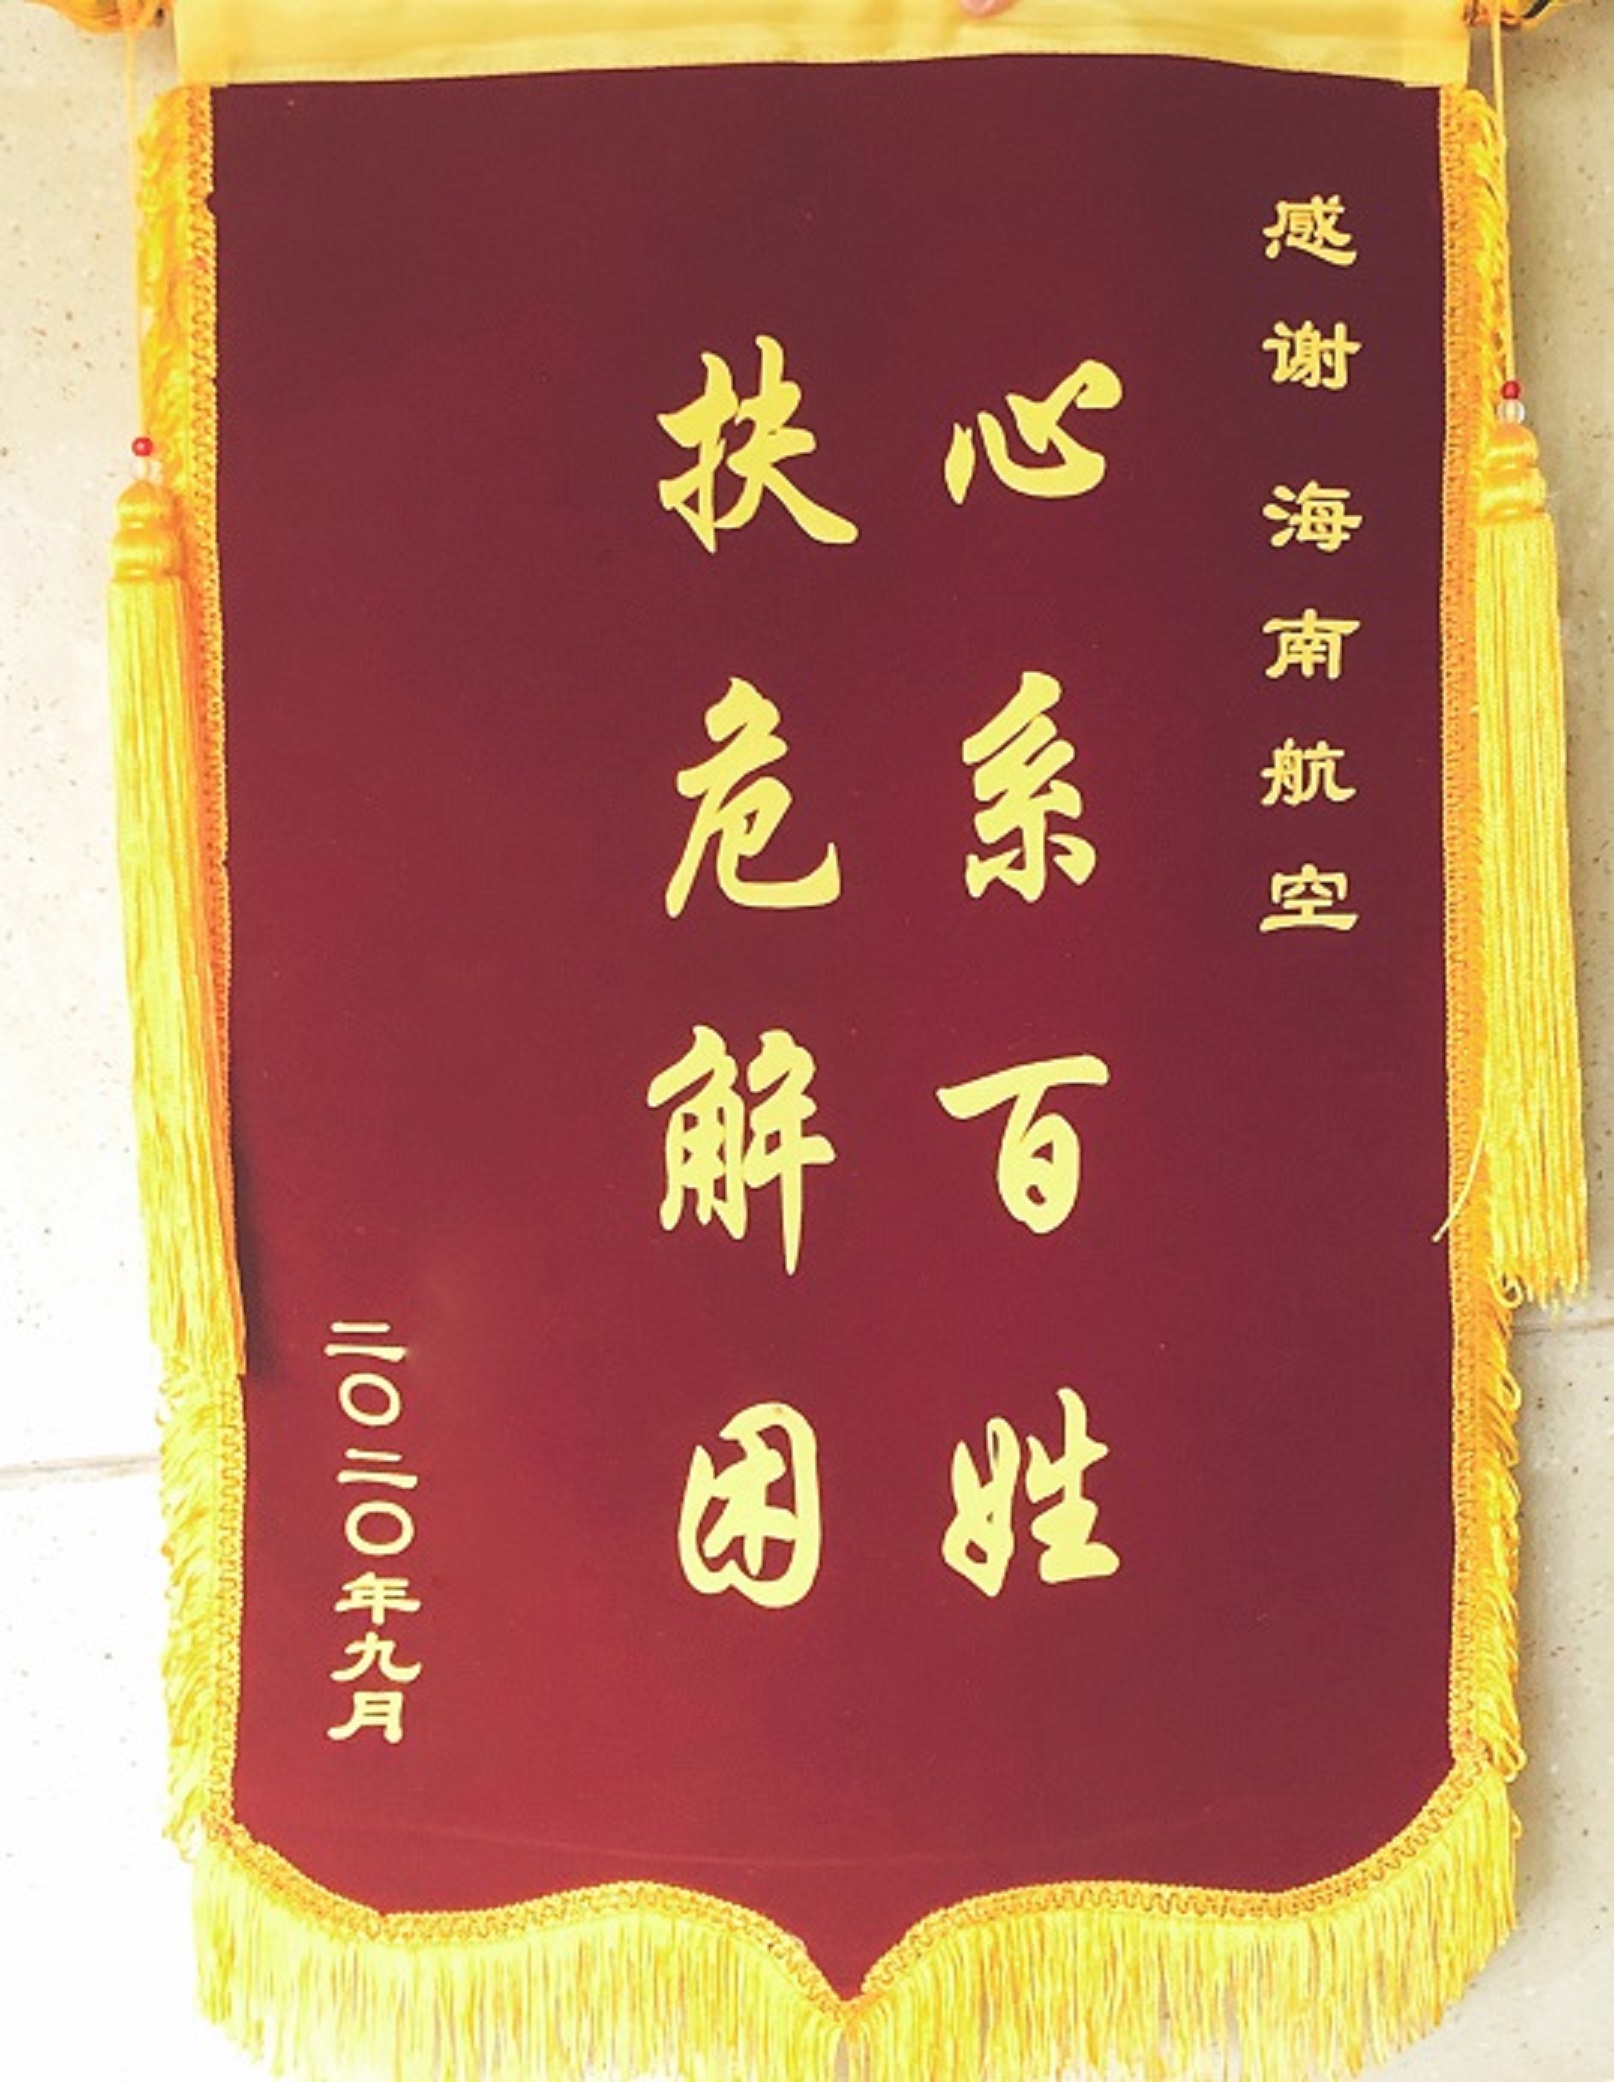 感谢海南航空
心系百姓
扶危解困
二〇二〇年九月